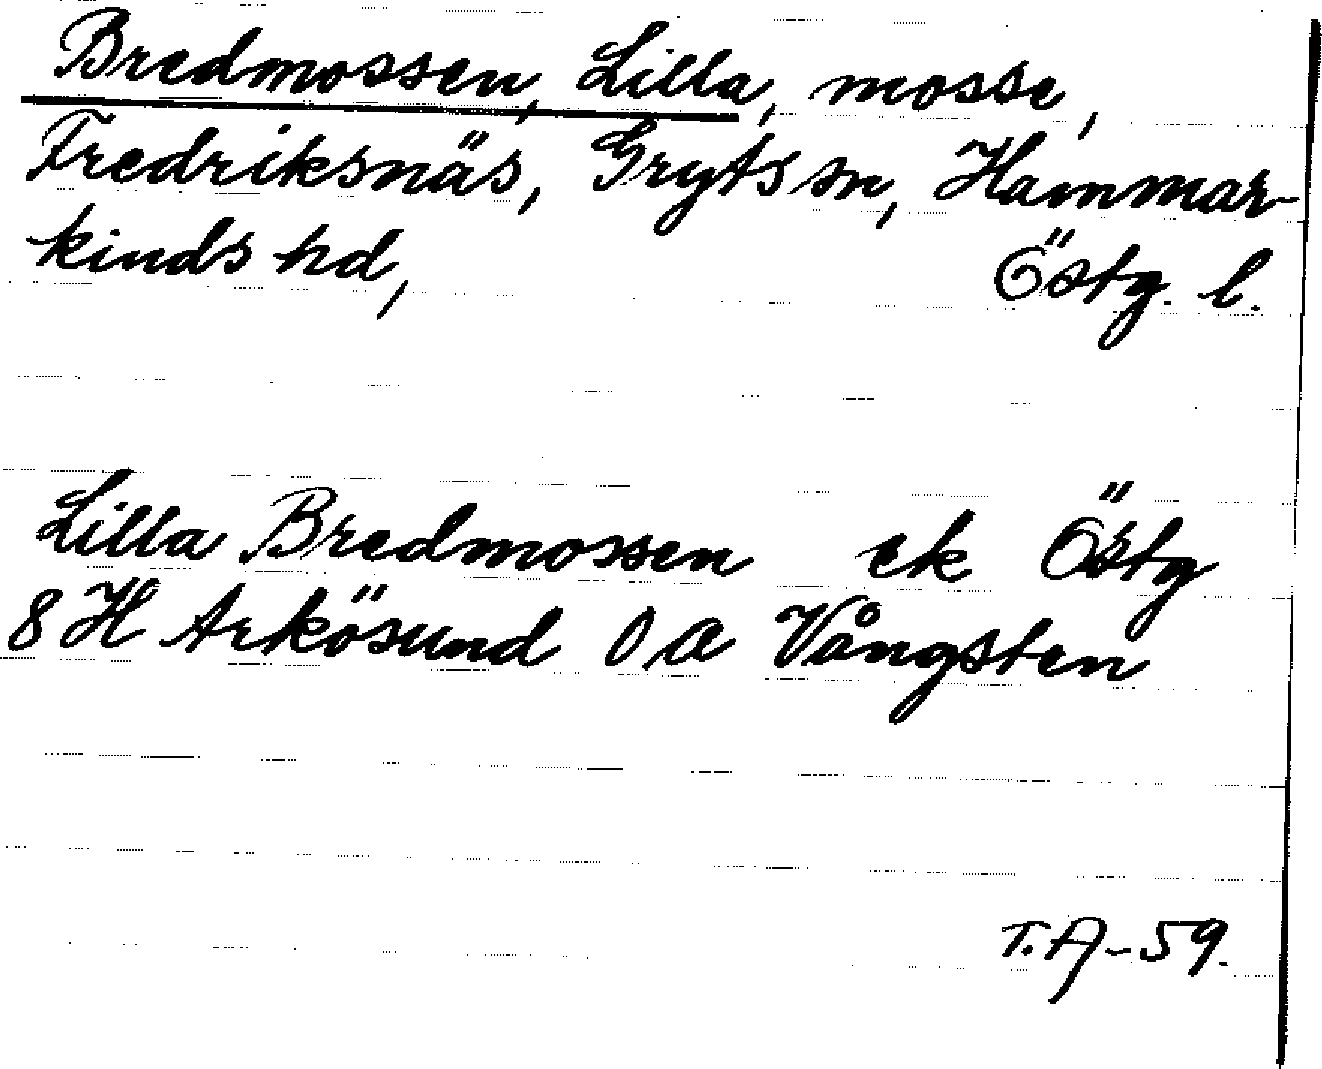 Bredmossen, Lilla, mosse,
Fredriksnäs, Gryts sn, Hammar-
kinds hd, Östg. l.
Lilla Bredmossen ek Östg
8 H Arkösund 0 a Vångsten
T. A-59.